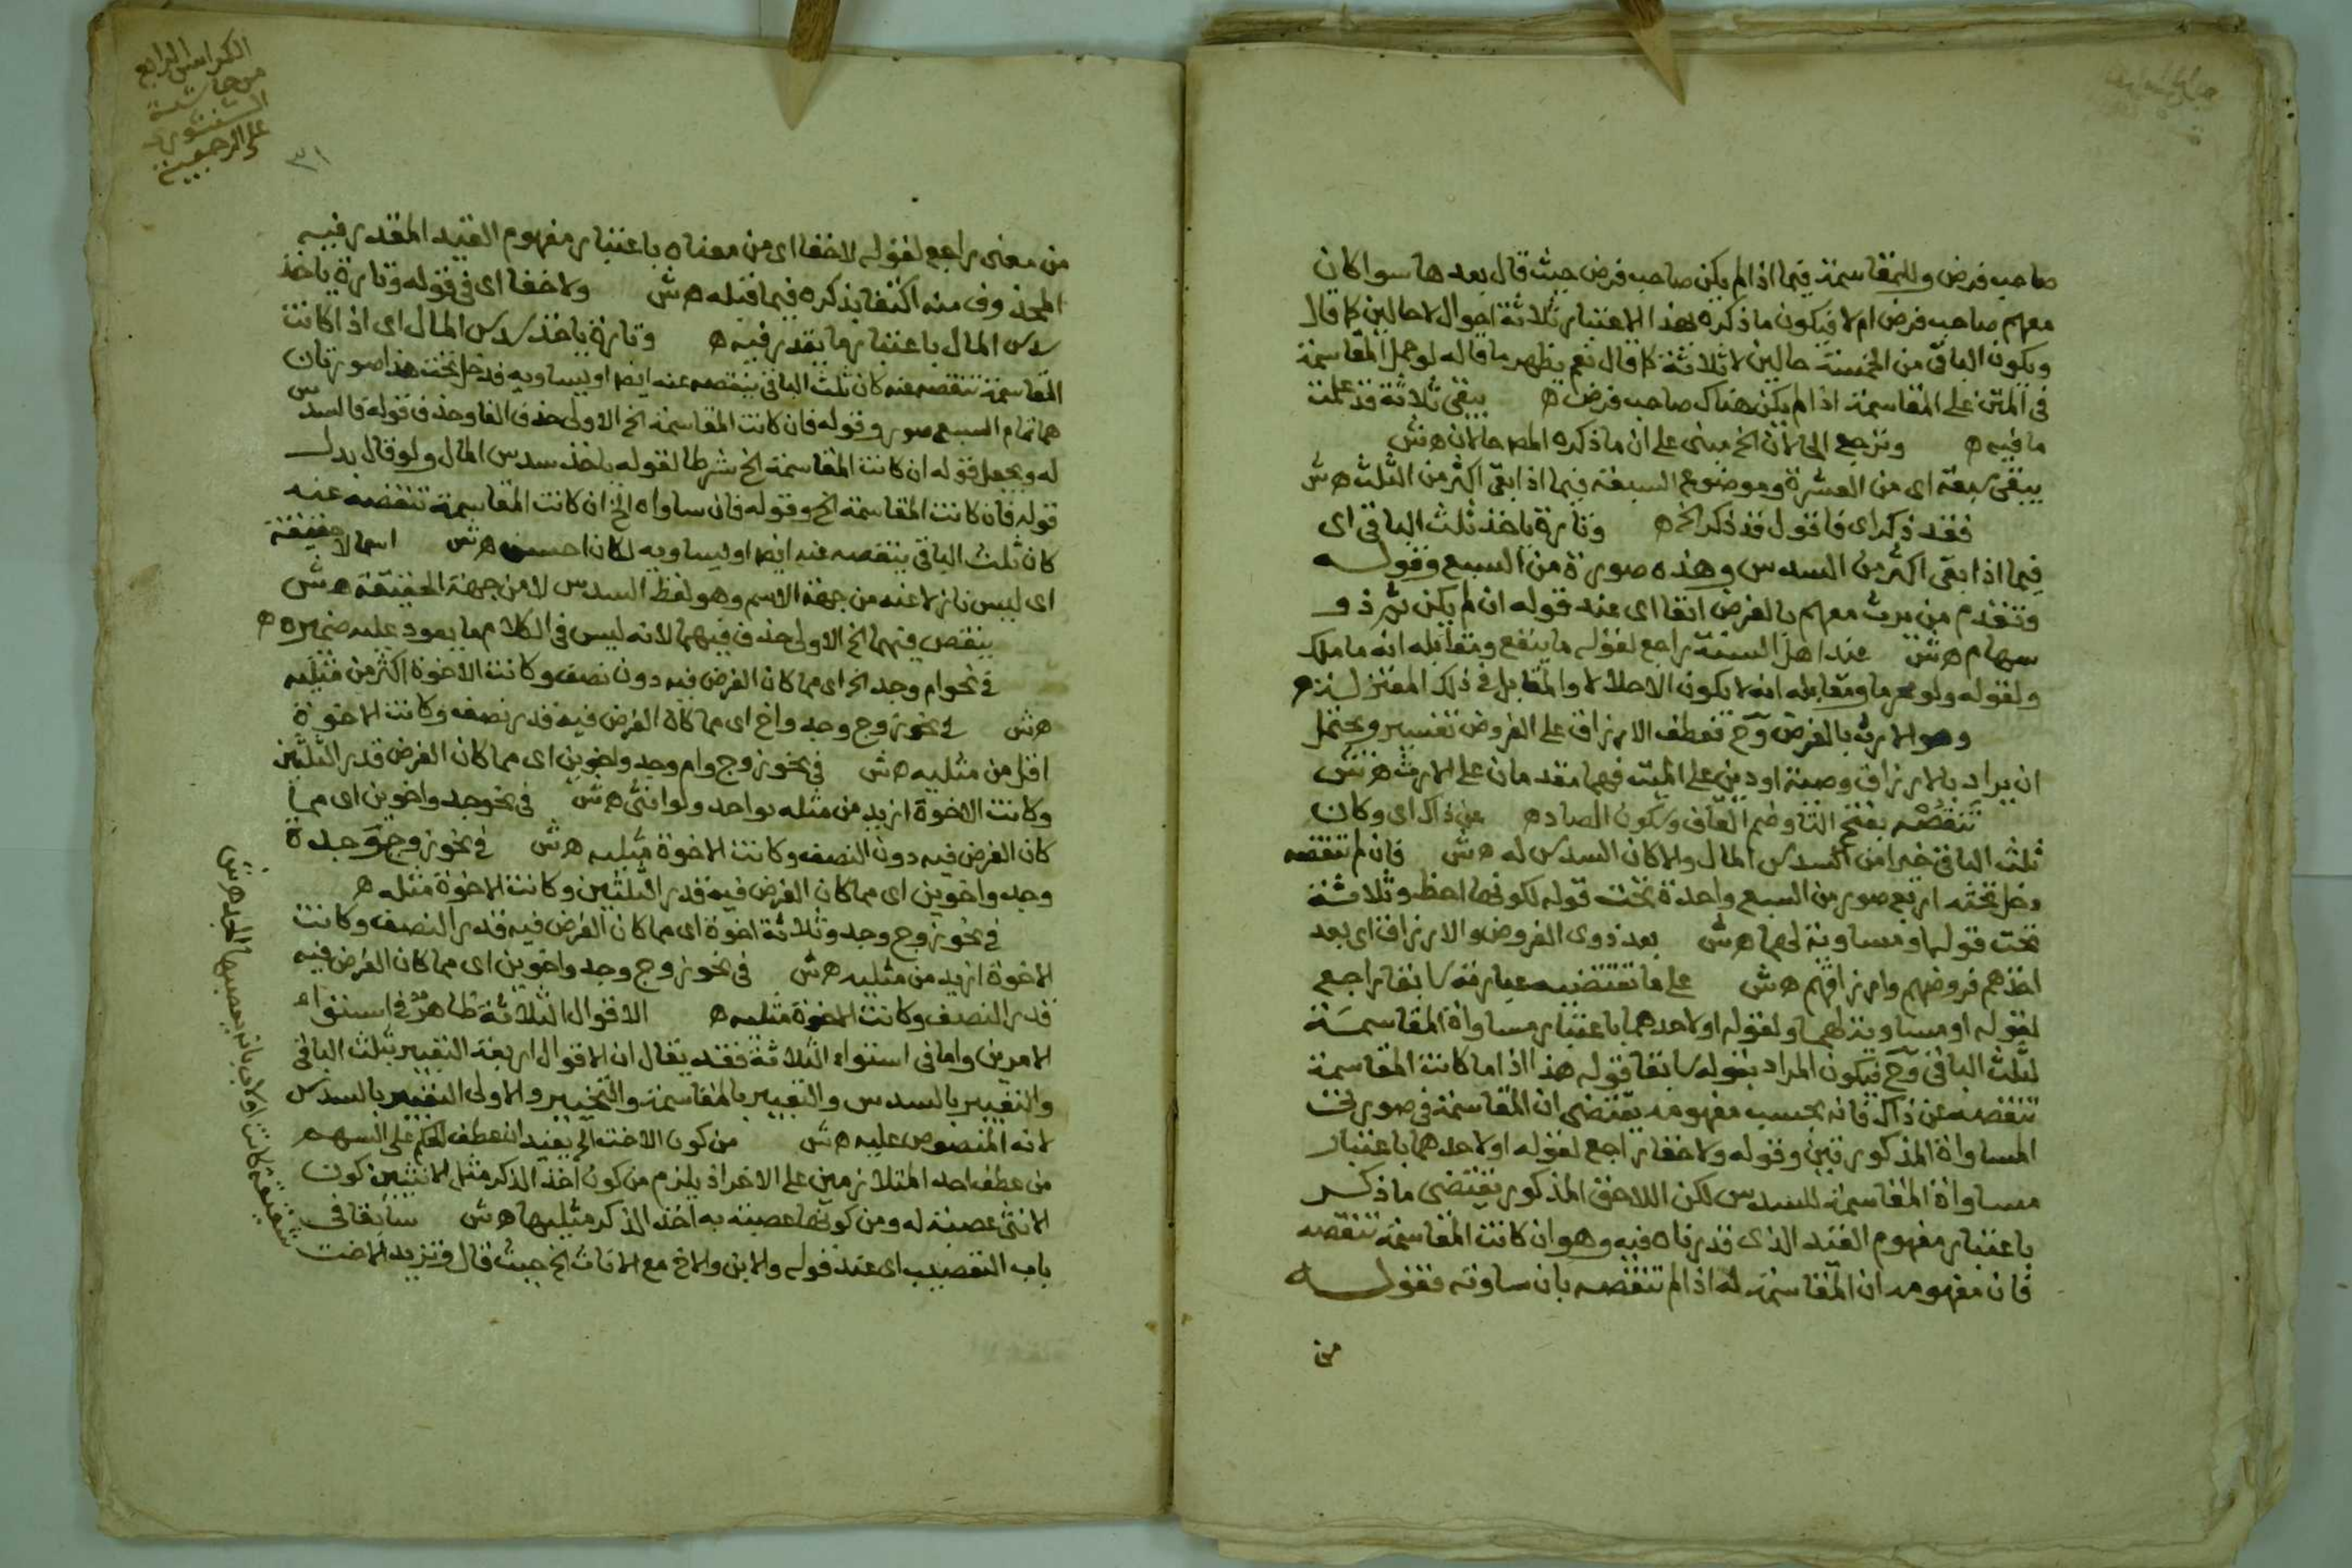 صاحب فرض وللمقاسمة فيما اذا لم يكن صاحب فرض حيث قال بعدها سوا كان
معهم صاحب فرض ام لا فيكون ما ذكره بهذا الاعتبار ثلاثة احوال لا حالين كما قال
ويكون الباقي من الخمسة حالين لا ثلاثة كما قال نعم يظهر ما قاله لو حمل المقاسمة
في المتن على المقاسمة اذا لم يكن هناك صاحب فرض ه يبقى ثلاثة قد علمت
ما فيه ه وترجع الى لان الخ مبنى على ان ما ذكره المصـ حالان ه ش
يبقى سبعة اى من العشرة وموضوع السبعة فيما اذا بقى اكثر من الثلث ه ش
فقد ذكر اى فاقول قد ذكر الخ ه وتارة ياخذ ثلث الباقي اى
فيما اذا بقى اكثر من السدس وهذه صورة من السبع وقوله
وتقدم من يرث معهم بالفرض انفا اى عند قوله ان لم يكن ثم ذو
سهام ه ش عند اهل السنة راجع لقوله ما ينفع ومقابله انه ما ملك
ولقوله ولو محرما ومقابله انه لا يكون الاحلالا والمقابل في ذلك المعتزلة ه
وهو الارث بالفرض وح فعطف الارزاق على الفروض تفسير ويحتمل
ان يراد بالارزاق وصية او دين على الميت فهما مقدمان على الارث ه ش
تنقصه بفتح التا وضم القاف وسكون الصاد ه عن ذاك اى وكان
ثلث الباقي خيرا من السدس المال والا كان السدس له ه ش فان لم تنقصه
دخل تحته اربع صور من السبع واحدة تحت قوله لكونها احظ وثلاثة
تحت قوله او مساوية لهما ه ش بعد ذوى الفروض والارزاق اى بعد
اخذهم فروضهم وارزاقهم ه ش على ما تقتضيه عبارته سابقا راجع
لقوله او مساوية لهما ولقوله او لاحدهما باعتبار مساواة المقاسمة
لثلث الباقي وح فيكون المراد بقوله سابقا قوله هذا اذا ما كانت المقاسمة
تنقصه عن ذاك فانه بحسب مفهومه يقتضى ان المقاسمة في صورتى
المساواة المذكورتين وقوله ولا خفا راجع لقوله او لاحدهما باعتبار
مساواة المقاسمة للسدس لكن اللاحق المذكور يقتضى ما ذكر
باعتبار مفهوم القيد الذى قدرناه فيه وهو ان كانت المقاسمة تنقصه
فان مفهومه ان المقاسمة له اذا لم تنقصه بان ساوته فقوله
من
الكراس الرابع
من حاشية
الشنشورى
على الرحبية
٣١
من معنى راجع لقوله لا خفا اى من معناه باعتبار مفهوم القيد المقدر فيه
المحذوف منه اكتفا بذكره فيما قبله ه ش ولا خفا اى في قوله وتارة ياخذ
سدس المال باعتبار ما يقدر فيه ه وتارة ياخذ سدس المال اى اذا كانت
المقاسمة تنقصه عنه كان ثلث الباقي ينقصه عنه ايضا او يساويه فدخل تحت هذا صورتان
هما تمام السبع صور وقوله فان كانت المقاسمة الخ الاولى حذف الفا وحذف قوله فالسدس
له ويجعل قوله ان كانت المقاسمة الخ شرطا لقوله ياخذ سدس المال ولو قال بدل
قوله فان كانت المقاسمة الخ وقوله فان ساواه الخ ان كانت المقاسمة تنقصه عنه
كان ثلث الباقي ينقصه عنه ايضا او يساويه لكان احسن ه ش اسما لا حقيقة
اى ليس نازلا عنه من جهة الاسم وهو لفظ السدس لا من جهة الحقيقة ه ش
ينقص فيهما الخ الاولى حذف فيهما لانه ليس في الكلام ما يعود عليه ضميره ه
في نحو ام وجد الخ اى مما كان الفرض فيه دون نصف وكانت الاخوة اكثر من مثليه
ه ش في نحو زوج وجد واخ اى مما كان الفرض فيه قدر نصف وكانت الاخوة
اقل من مثليه ه ش في نحو زوج وام وجد واخوين اى مما كان الفرض قدر الثلثين
وكانت الاخوة ازيد من مثله بواحد ولو انثى ه ش في نحو جد واخوين اى مما
كان الفرض فيه دون النصف وكانت الاخوة مثليه ه ش في نحو زوج وجدة
وجد واخوين اى مما كان الفرض فيه قدر الثلثين وكانت الاخوة مثله ه
في نحو زوج وجد وثلاثة اخوة اى مما كان الفرض فيه قدر النصف وكانت
الاخوة ازيد من مثليه ه ش في نحو زوج وجد واخوين اى مما كان الفرض فيه
قدر النصف وكانت الاخوة مثليه ه الاقوال الثلاثة ظاهر في استواء
الامرين واما في استواء الثلاثة فقد يقال ان الاقوال اربعة التعبير بثلث الباقي
والتعبير بالسدس والتعبير بالمقاسمة والتخيير والاولى التعبير بالسدس
لانه المنصوص عليه ه ش من كون الاخت الخ يفيد ان عطف الحكم على السهم
من عطف احد المتلازمين على الاخر اذ يلزم من كون اخذ الذكر مثل الانثيين كون
الانثى عصبة له ومن كونها عصبة به اخذ الذكر مثليها ه ش سابقا في
باب التعصيب اى عند قوله والابن والاخ مع الاناث الخ حيث قال وتزيد الاخت
شقيقة كانت او لاب بانه يعصبها الجد ه ش